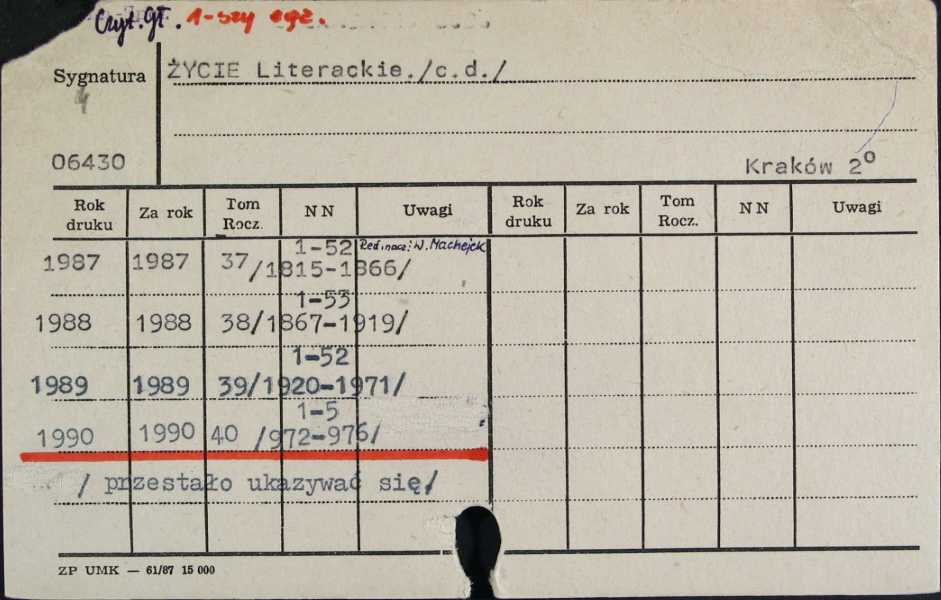 Czyt. Gł. 1-szy egz.
Sygnatura ŻYCIE Literackie./c.d./
06430 Kraków 2°
Rok druku Za rok Tom Rocz. NN Uwagi Rok druku Za rok Tom Rocz.. NN Uwagi
1-52 Red. nacz: W. Machejek
1987 1987 37/1815-1866/
1-53
1988 1988 38/1867-1919/
1-52
1989 1989 39/1920-1971/
1-5
1990 1990 40 /972-976/
/ przestało ukazywać się/
ZP UMK — 61/87 15 000